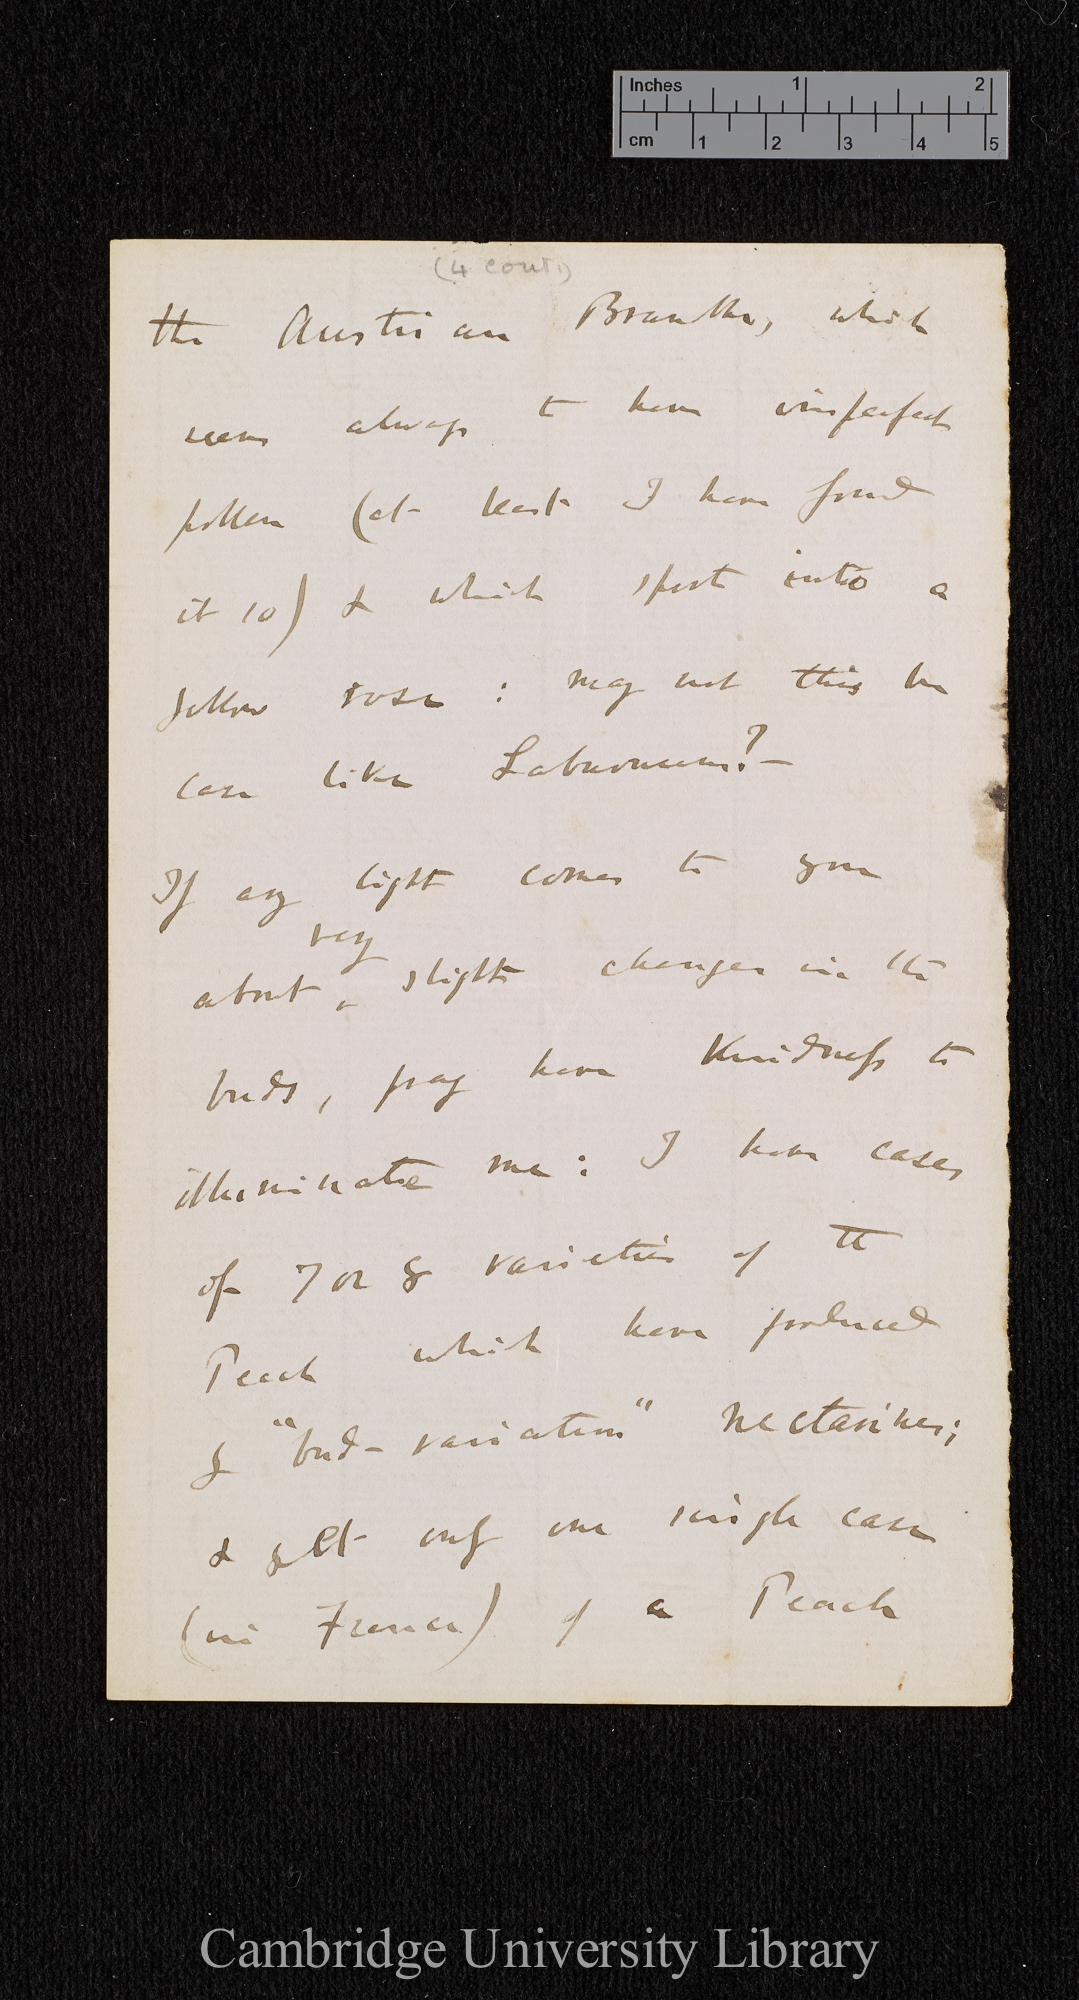 Inches 1 2
cm 1 2 3 4 5
(4 cont.)
the Austrian Bramble, which
seems always to have imperfect
pollen (at least I have found
it so) & which sport into a
yellow rose: may not this be
case like Laburnum?—
If any light comes to you
very
about ^ slight changes in the
buds, pray have kindness to
illuminate me: I have cases
of 7 or 8 varieties of the
Peach which have produced
by "bud-variation" nectarines;
& yet only one single case
(in France) of a Peach
Cambridge University Library